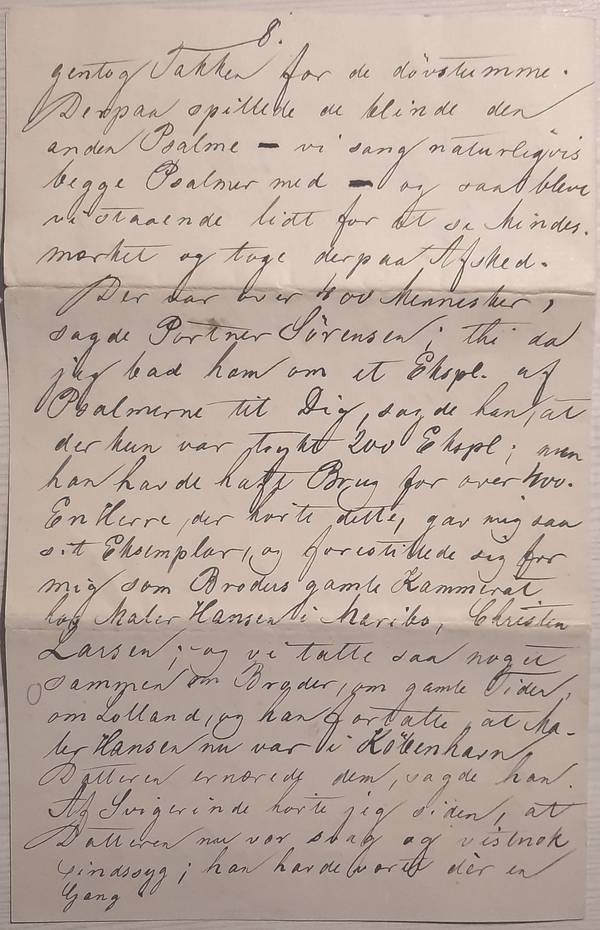 8.
gentog Takken for de døvstumme.
Derpaa spillede de blinde den
anden Psalme – vi sang naturligvis
begge Psalmer med – og saa bleve
vi staaende lidt for at se Mindes-
mærket og toge derpaa Afsked.
Der var over 400 Mennesker,
sagde Portner Sörensen; thi da
jeg bad ham om et Ekspl. af
Psalmerne til Dig, sagde han, at
der kun var trykt 200 Ekspl; men
han havde haft Brug for over 400.
En Herre, der hørte dette, gav mig saa
sit Eksemplar, og forestillede sig for
mig som Broders gamle Kammerat
hos Maler Hansen i Maribo, Christen
Larsen; og vi talte saa noget
sammen om Broder, om gamle Tider,
om Lolland, og han fortalte, at Ma-
ler Hansen nu var i København.
Datteren ernærede dem, sagde han.
Af Svigerinde hørte jeg siden, at
Datteren nu var svag og vistnok
sindssyg; han havde været dèr en
Gang